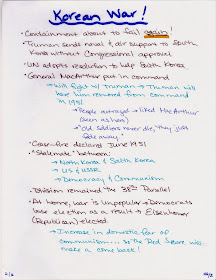 Korean War!
• Containment about to fail again!
• Truman sends naval & air support to South
Korea without Congressional approval
• UN adopts resolution to help South Korea
• General MacArthur put in command
→ Will fight w/ Truman → Truman will
have him removed from command
in 1951
→ People outraged → liked MacArthur
(seen as hero)
→ "Old soldiers never die, they just
fade away."
• Cease-fire declared June 1951
• "Stalemate" between:
→ North Korea & South Korea
→ US & USSR
→ Democracy & Communism
• Division remained the 38th Parallel
• At home, war is unpopular → Democrats
lose election as a result → Eisenhower
(Republican) elected.
→ Increase in domestic fear of
communism... so the Red Scare will
make a come back!